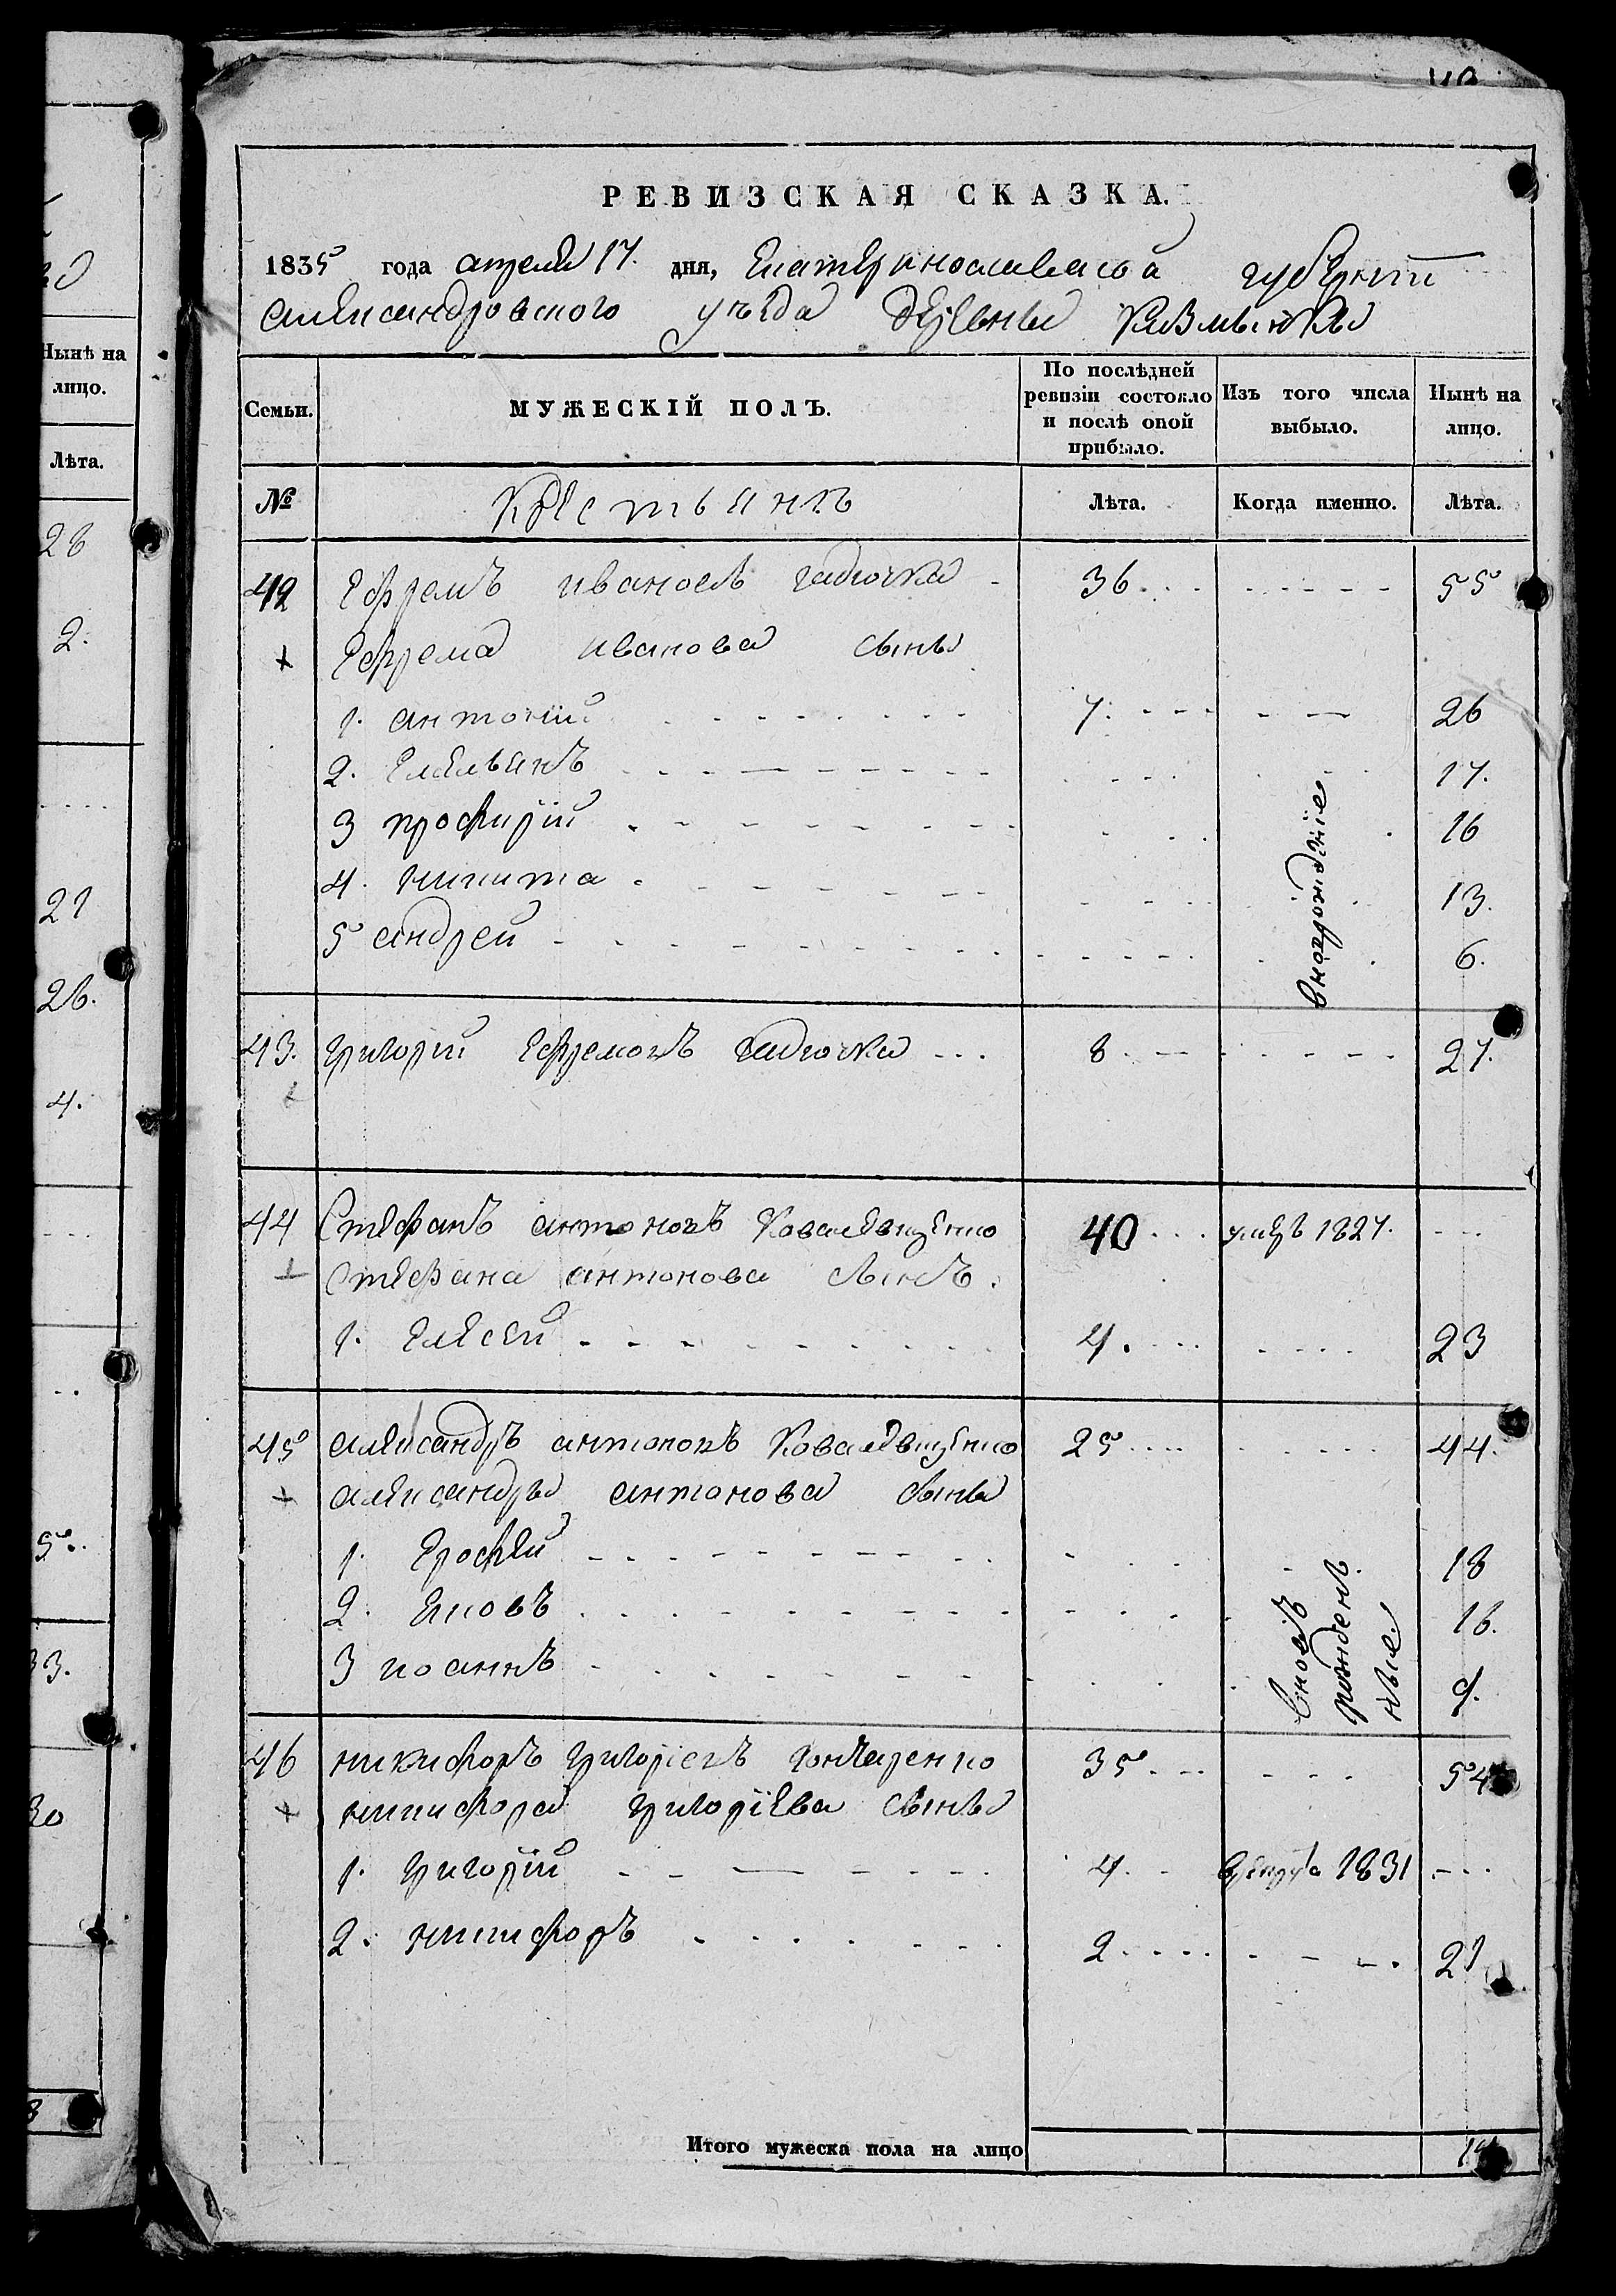 РЕВИЗСКАЯ СКАЗКА.
1835 года апреля 17. дня, Екатеринославской губернии
александровского уезда деревни
Семьи. МУЖЕСКІЙ ПОЛЪ. По послѣдней ревизіи состояло и послѣ оной прибыло. Изъ того числа выбыло. Нынѣ на лицо.
№ Крестьянъ Лѣта. Когда именно. Лѣта.
42 Ефремъ ивановъ гадючка 36 55
Ефрема иванова сыны
1. антоній 7. 26
2. Емельянъ 17.
3 профирій 16
4. никита 13.
5 андрей 6.
вноврожденіе
43. григорій Ефремовъ гадючка 8 27.
44 Стефанъ антоновъ 40 умеръ 1827.
Стефана антонова сынъ.
1. Елесей 4. 23
45 александръ антоновъ 25 44.
александра антонова сыны
1. Ерофей 18
2. Яковъ 16.
3 иоаннъ 9.
вновъ рожденные
46 никифоръ григоріевъ гончаренко 35 54
никифора григоріева сыны
1. григорій 4. 1831
2. никифоръ 2 21
Итого мужеска пола на лицо
Нынѣ на
лицо.
Лѣта.
28
2.
21
26.
4.
5.
33.
30
8